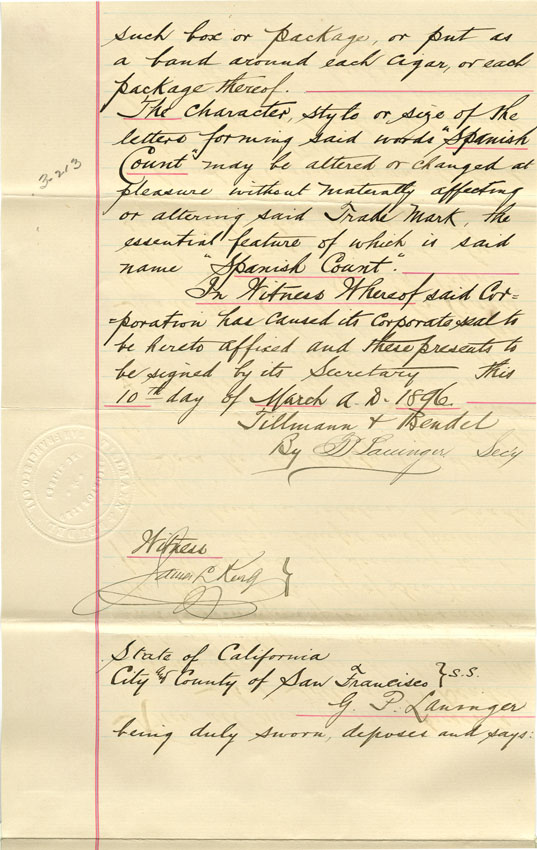 such box or package, or put as
a band around each cigar, or each
package thereof.
The character, style or size of the
letters forming said words "Spanish
Count" may be altered or changed at
pleasure without materially affecting
or altering said Trade Mark, the
essential feature of which is said
name "Spanish Count".
In Witness Whereof said Cor=
=poration has caused its corporate seal to
be hereto affixed and these presents to
be signed by its Secretary this
10th day of March A.D. 1896.
Tillmann & Bendel
By Secy
3-213
Witness
James L King
State of California
City & County of San Francisco } S.S.
G. P. Lauinger
being duly sworn, deposes and says: